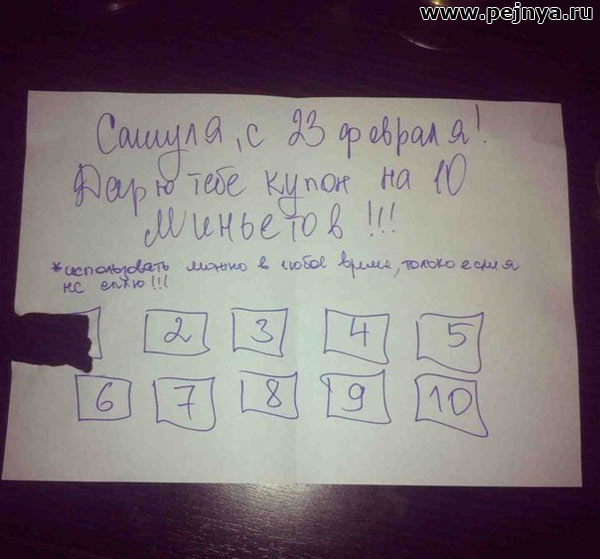 www.pejnya.ru
Сашуля, с 23 февраля!
Дарю тебе купон на 10
Миньетов!!!
*использовать можно в любое время, только если я
не сплю!!!
2 3 4 5
6 7 8 9 10